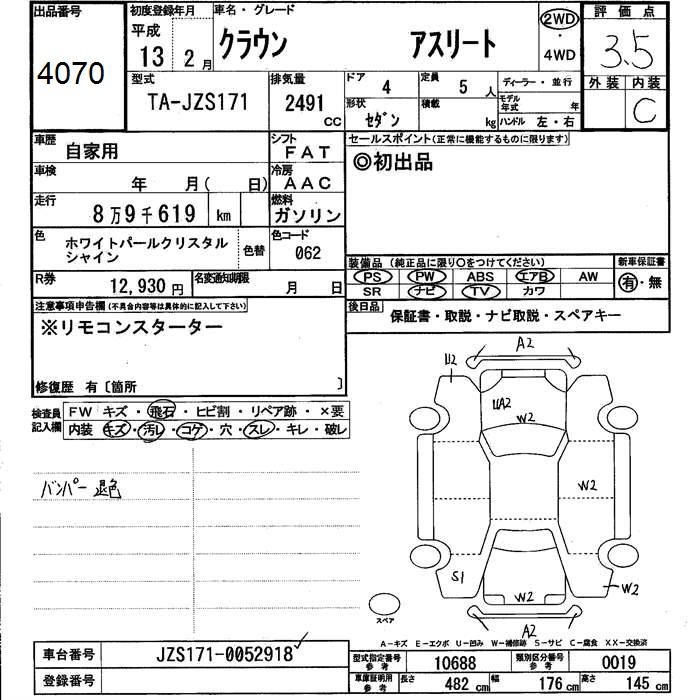 出品番号
4070
初度登録年月
平成
13 2月
車名・グレード
クラウン アスリート
2WD
・
4WD
評価点
3.5
外装 内装
C
型式
TA-JZS171
排気量
2491
CC
ドア 4
定員 5人
ディーラー・並行
形状
セダン
積載 kg
モデル年式 年
ハンドル 左・右
車歴
自家用
シフト
FAT
セールスポイント(正常に機能するものに限ります)
◎初出品
車検
年 月( 日)
冷房
AAC
走行
8万9千619 km
燃料
ガソリン
色
ホワイトパールクリスタル
シャイン
色替
色コード
062
装備品 (純正品に限り○をつけてください)
新車保証書
PS PW ABS エアB AW
SR ナビ TV カワ
有・無
R券
12,930円
名変通知期限
月 日
後日品
保証書・取説・ナビ取説・スペアキー
注意事項申告欄(不具合内容等は具体的に記入して下さい)
※リモコンスターター
修復歴 有〔箇所 〕
検査員
記入欄
FW キズ・飛石・ヒビ割・リペア跡・×要
内装 キズ・汚レ・コゲ・穴・スレ・キレ・破レ
バンパー 退色
A2
U2
UA2
W2
W2
S1
W2
W2
A2
スペア
A-キズ E-エクボ U-凹み W-補修跡 S-サビ C-腐食 XX-交換済
車台番号
JZS171-0052918
登録番号
型式指定番号
参考
10688
類別区分番号
参考
0019
車庫証明用
参考
長さ 482 cm
幅 176 cm
高さ 145 cm